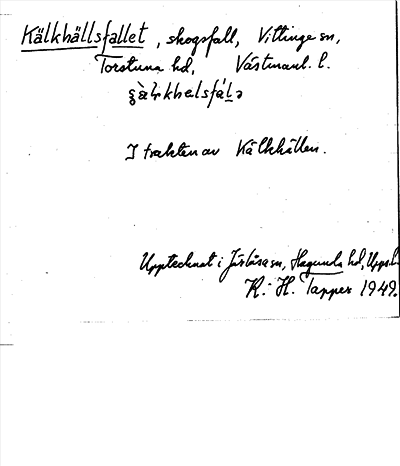 Kälkhällsfallet, skogsfall, Vittinge sn,
Torstuna hd, Västmanl. l.
I trakten av Kälkhällen.
Upptecknat i Järlåsa sn, Hagunda hd, Upps. l.
K. H. Tapper 1949.